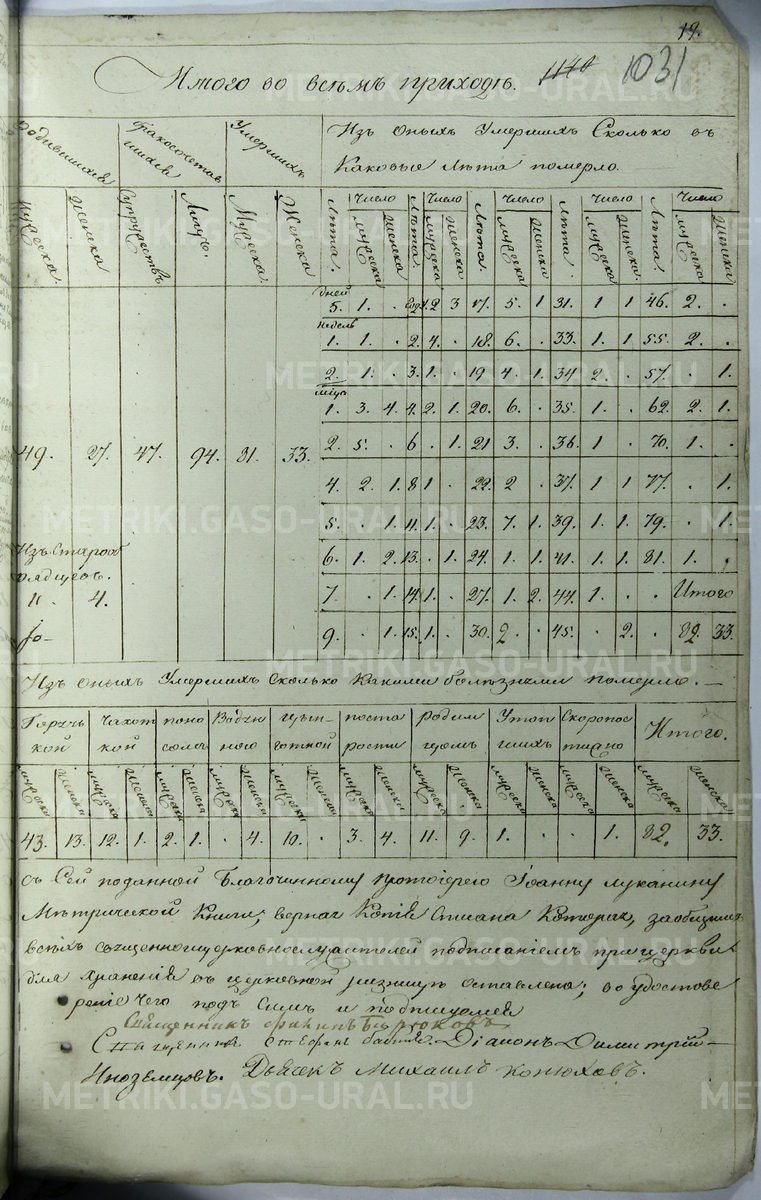 19.
Итого во всѣмъ приходѣ. 1031
родившихся бракосочетавшихся Умершихъ Изъ оныхъ Умершихъ Сколько въ
Каковые лѣта померло.
Мужеска. Женска Супружествъ Лицъ. Мужеска. Женска. Лѣта. Число Мужеска Женска Лѣта. Число Мужеска Женска Лѣта. Число Мужеска Женска Лѣта. Число Мужеска Женска Лѣта. Число Мужеска Женска
дней
5. 1. . 2 3 17. 5. 1 31. 1 1 46. 2. .
недель
1. 1. . 2. 4. . 18. 6. . 33. 1. 1 55. 2. .
2. 1. . 3. 1. . 19 4. 1. 34 2. . 57. . 1.
1. 3. 4. 4. 2. 1. 20. 6. . 35. 1. . 62. 2. 1.
2. 5. . 6 . 1. 21 3. . 36. 1 . 70. 1. .
49. 27. 47. 94. 81. 33.
4. 2. 1. 8 1. . 22. 2 . 37. 1 1 77. . 1.
5. . 1. 11. 1. . 23. 7. 1. 39. 1. 1. 79. . 1.
Изъ старооб
рядцевъ.
6. 1. 2. 13. . 1. 24. 1. 1. 41. 1. 1. 81. 1. .
11. 4.
7. . 1. 14. 1. . 27. 1. 2. 44. 1. . Итого
9. . 1. 15. 1. . 30. 2. . 45. . 2. . 82. 33.
Изъ оныхъ Умершихъ Сколько какими болѣзньми померло. —
Горяч
кой Чахот
кой поно
сомъ Водян
ною цын
готной
старости родим
цомъ Утоп
шихъ Скоропос
тижно Итого.
мужеска Женска мужеска Женска мужеска Женска мужеска Женска мужеска Женска мужеска Женска мужеска Женска мужеска Женска мужеска Женска мужеска Женска
43. 13. 12. 1. 2. 1. . 4. 10. . 3. 4. 11. 9. 1. . . 1. 82. 33.
съ Сей поданной Благочинному протоіерею Іоанну Луканину
Мѣтрической Книги, верная Копія Списана Которая, за общимъ
всѣхъ священноцерковнослужителей подписаніемъ при церкви
для храненія въ церковной ризницѣ оставлена; во удостове
реніе Чего подъ симъ и подпишемся
Священникъ Филипъ Бирюковъ
Священникъ Стефанъ Діаконъ Димитрій
Иноземцовъ. Дьячекъ Михаилъ Конюховъ.
METRIKI.GASO-URAL.RU
METRIKI.GASO-URAL.RU
METRIKI.GASO-URAL.RU
METRIKI.GASO-URAL.RU
METRIKI.GASO-URAL.RU